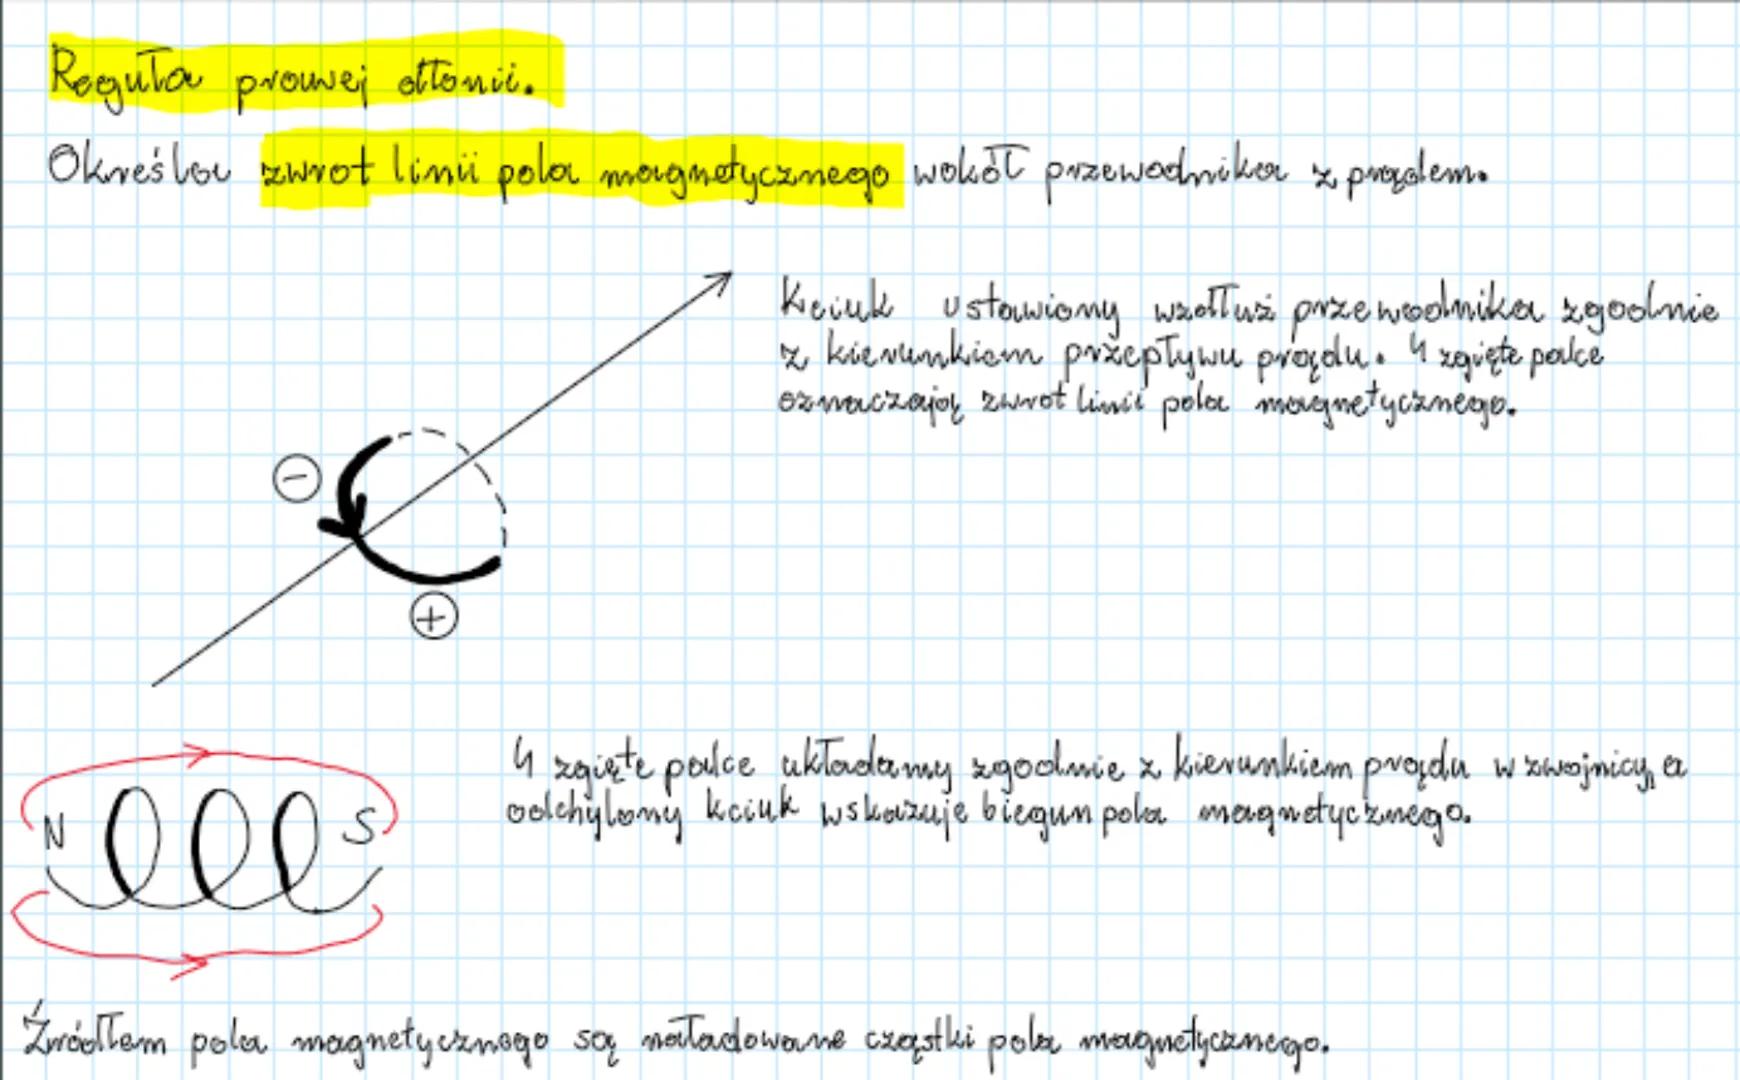 Reguła prawej dłonii.
Określa zwrot linii pola magnetycznego wokół przewodnika z prądem.
Kciuk ustawiony wzdłuż przewodnika zgodnie
z kierunkiem przepływu prądu. 4 zgięte palce
oznaczają zwrot linii pola magnetycznego.
−
+
4 zgięte palce układamy zgodnie z kierunkiem prądu w zwojnicy, a
odchylony kciuk wskazuje biegun pola magnetycznego.
N S
Źródłem pola magnetycznego są naładowane cząstki pola magnetycznego.